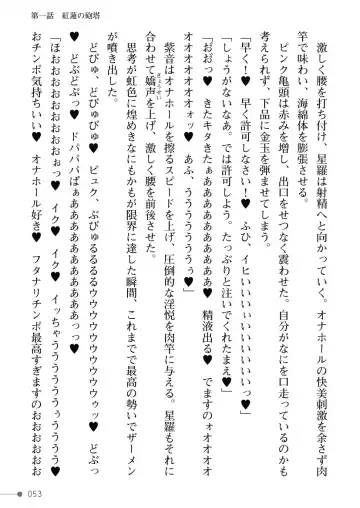 第一話　紅蓮の砲塔
　激しく腰を打ち付け、星羅は射精へと向かっていく。オナホールの快美刺激を余さず肉
竿で味わい、海綿体を膨張させる。
　ピンク亀頭は赤みを増し、出口をせつなく震わせた。自分がなにを口走っているのかも
考えられず、下品に金玉を弾ませてしまう。
「早く！♥　早く許可しなさい！♥　ふひ、イヒいいいいいいいいいいいっ♥」
「しょうがないなあ。では許可しよう。たっぷりと注いでくれたまえ♥」
「おおっ♥　きたキタきたぁああああああああ♥　精液出る♥　でますのォオオオオ
オオオオオオオォォッ♥　あふ、うううううううぅ♥」
　紫音はオナホールを擦るスピードを上げ、圧倒的な淫悦を肉竿に与える。星羅もそれに
合わせて嬌声を上げ、激しく腰を前後させた。
きょうせい
　思考が虹色に煌めきなにもかもが限界に達した瞬間、これまでで最高の勢いでザーメン
が噴き出した。
　どびゅ、どびゅびゅ♥　ビュク、ぶびゅるるるるウウウウウウウウウウゥッ♥　どぶっ
♥　どぶどぷっ♥　ドパパパぱぁあああああああああああああっっ♥
「ほおおおおおおおおおぉっ♥　イク♥　イク♥　イッちゃうううううぅうううう♥
おチンポ気持ちいい♥　オナホール好き♥　フタナリチンポ最高すぎますのおおおおお
053